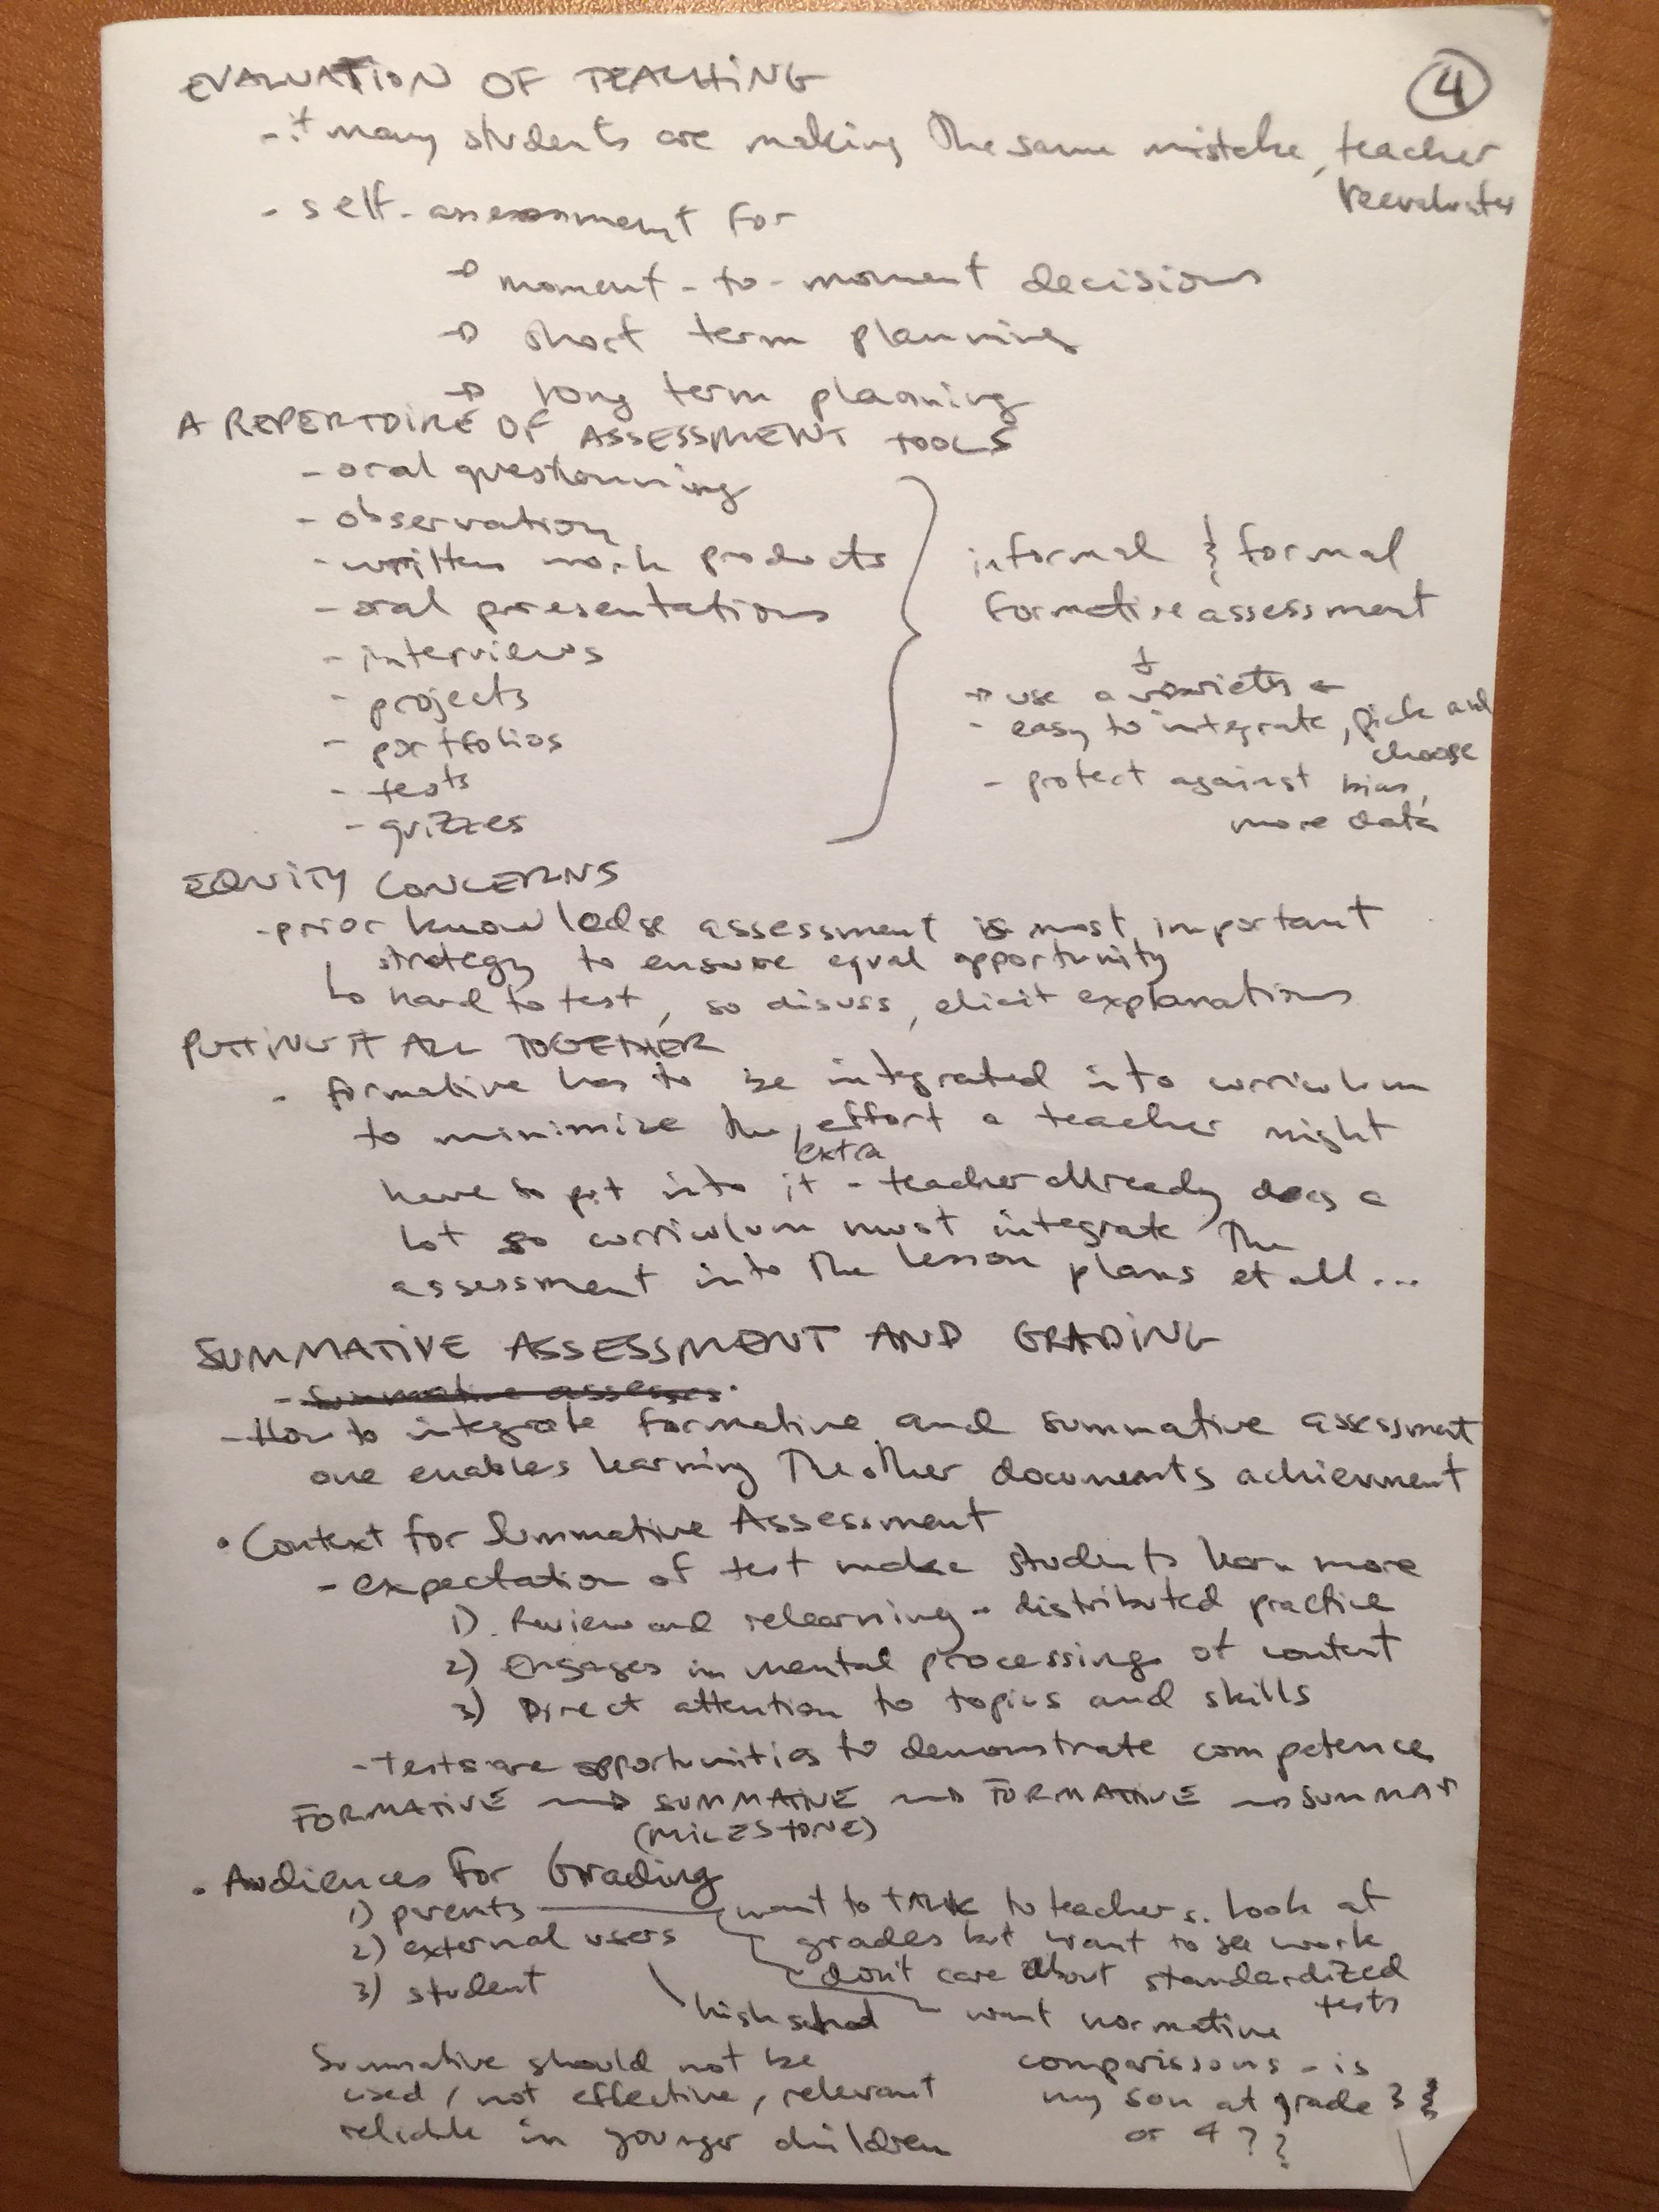 EVALUATION OF TEACHING
4
- if many students are making the same mistake, teacher
reevaluates
- self-assessment for
→ moment-to-moment decisions
→ short term planning
→ long term planning
A REPERTOIRE OF ASSESSMENT TOOLS
- oral questionning
- observation
- written work products
- oral presentations
- interviews
- projects
- portfolios
- tests
- quizzes
informal & formal
formative assessment
↓
→ use a variety ←
- easy to integrate, pick and
choose
- protect against bias,
more data
EQUITY CONCERNS
- prior knowledge assessment is most important
strategy to ensure equal opportunity
↳ hard to test, so disuss, elicit explanations
PUTTING IT ALL TOGETHER
- formative has to be integrated into curriculum
to minimize the extra effort a teacher might
have to put into it - teacher already does a
lot so curriculum must integrate the
assessment into the lesson plans et all...
SUMMATIVE ASSESSMENT AND GRADING
- Summative assesses
- How to integrate formative and summative assessment
one enables learning the other documents achievment
• Context for Summative Assessment
- expectation of test make students learn more
1) Review and relearning - distributed practice
2) Engages in mental processing of content
3) Direct attention to topics and skills
- tests are opportunities to demonstrate competence
FORMATIVE → SUMMATIVE → FORMATIVE → SUMMAT
(MILESTONE)
• Audiences for Grading
1) parents
2) external users
3) student
want to talk to teachers. Look at
grades but want to see work
don't care about standardized
tests
high school
want normative
comparissons - is
my son at grade 3
or 4??
Summative should not be
used / not effective, relevant
reliable in younger children